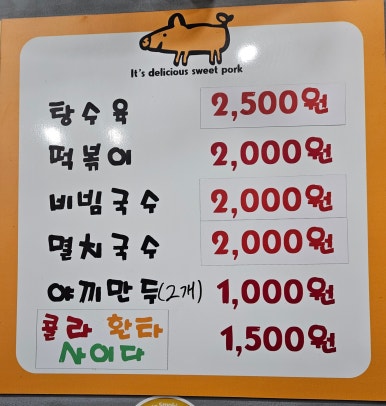 It's delicious sweet pork
탕수육 2,500원
떡볶이 2,000원
비빔국수 2,000원
멸치국수 2,000원
야끼만두(2개) 1,000원
콜라 환타 1,500원
사이다